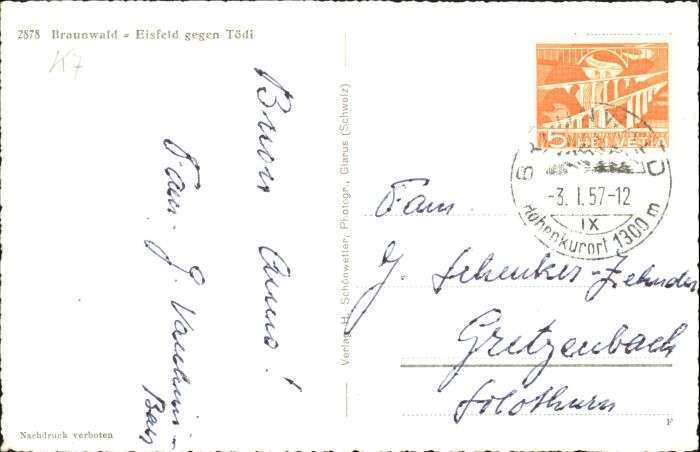 2878 Braunwald - Eisfeld gegen Tödi
K7
Buon Anno!
Fam. J.
Verlag H. Schönwetter, Photogr., Glarus (Schweiz)
5 HELVETIA
BRAUNWALD
-3. I. 57-12
IX
Höhenkurort 1300 m
Fam.
J. Schenker-Zehnder
Gretzenbach
Solothurn
Nachdruck verboten
F